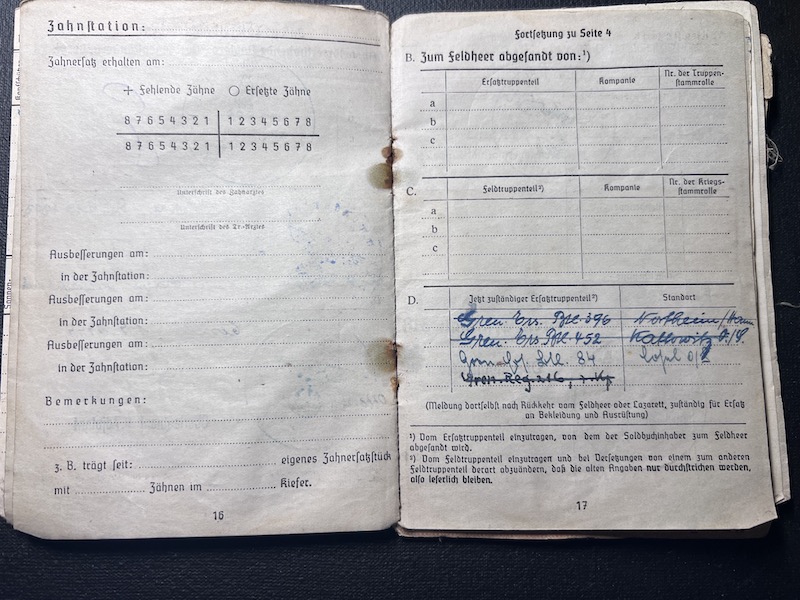 Zahnstation:
Zahnersatz erhalten am:
+ Fehlende Zähne ○ Ersetzte Zähne
8 7 6 5 4 3 2 1 | 1 2 3 4 5 6 7 8
8 7 6 5 4 3 2 1 | 1 2 3 4 5 6 7 8
Unterschrift des Zahnarztes
Unterschrift des Tr.-Arztes
Ausbesserungen am:
in der Zahnstation:
Ausbesserungen am:
in der Zahnstation:
Ausbesserungen am:
in der Zahnstation:
Bemerkungen:
z. B. trägt seit: eigenes Zahnersatzstück
mit Zähnen im Kiefer.
16
Fortsetzung zu Seite 4
B. Zum Feldheer abgesandt von:¹)
Ersatztruppenteil Kompanie Nr. der Truppen-
stammrolle
a
b
c
C. Feldtruppenteil²) Kompanie Nr. der Kriegs-
stammrolle
a
b
c
D. Jetzt zuständiger Ersatztruppenteil²) Standort
Gren. Ers. Btl. 396 Northeim/Hann
Gren. Ers. Btl. 452 Kattowitz O./S.
84
Gren. Reg. 216
(Meldung dortselbst nach Rückkehr vom Feldheer oder Lazarett, zuständig für Ersatz
an Bekleidung und Ausrüstung)
¹) Vom Ersatztruppenteil einzutragen, von dem der Soldbuchinhaber zum Feldheer
abgesandt wird.
²) Vom Feldtruppenteil einzutragen und bei Versetzungen von einem zum anderen
Feldtruppenteil derart abzuändern, daß die alten Angaben nur durchstrichen werden,
also leserlich bleiben.
17